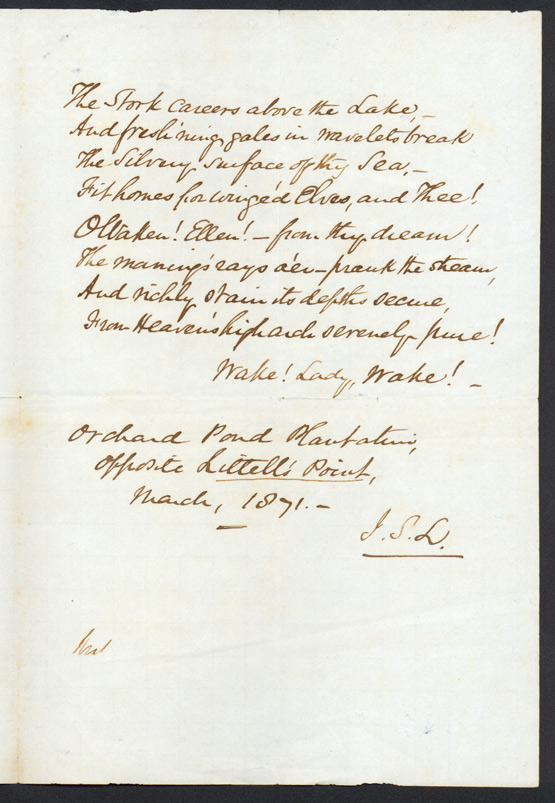 The Stork careers above the Lake,–
And fresh'ning gales in wavelets break
The Silvery surface of thy Sea,–
Fit homes for wingéd Elves, and Thee!
O Waken! Ellen! – from thy dream!
The morning's rays o'er–prank the stream,
And richly stain its depths secure,
From Heaven's high arch serenely pure!
Wake! Lady, Wake! –
Orchard Pond Plantation,
Opposite Littell's Point,
March, 1871.–
J. S. L.